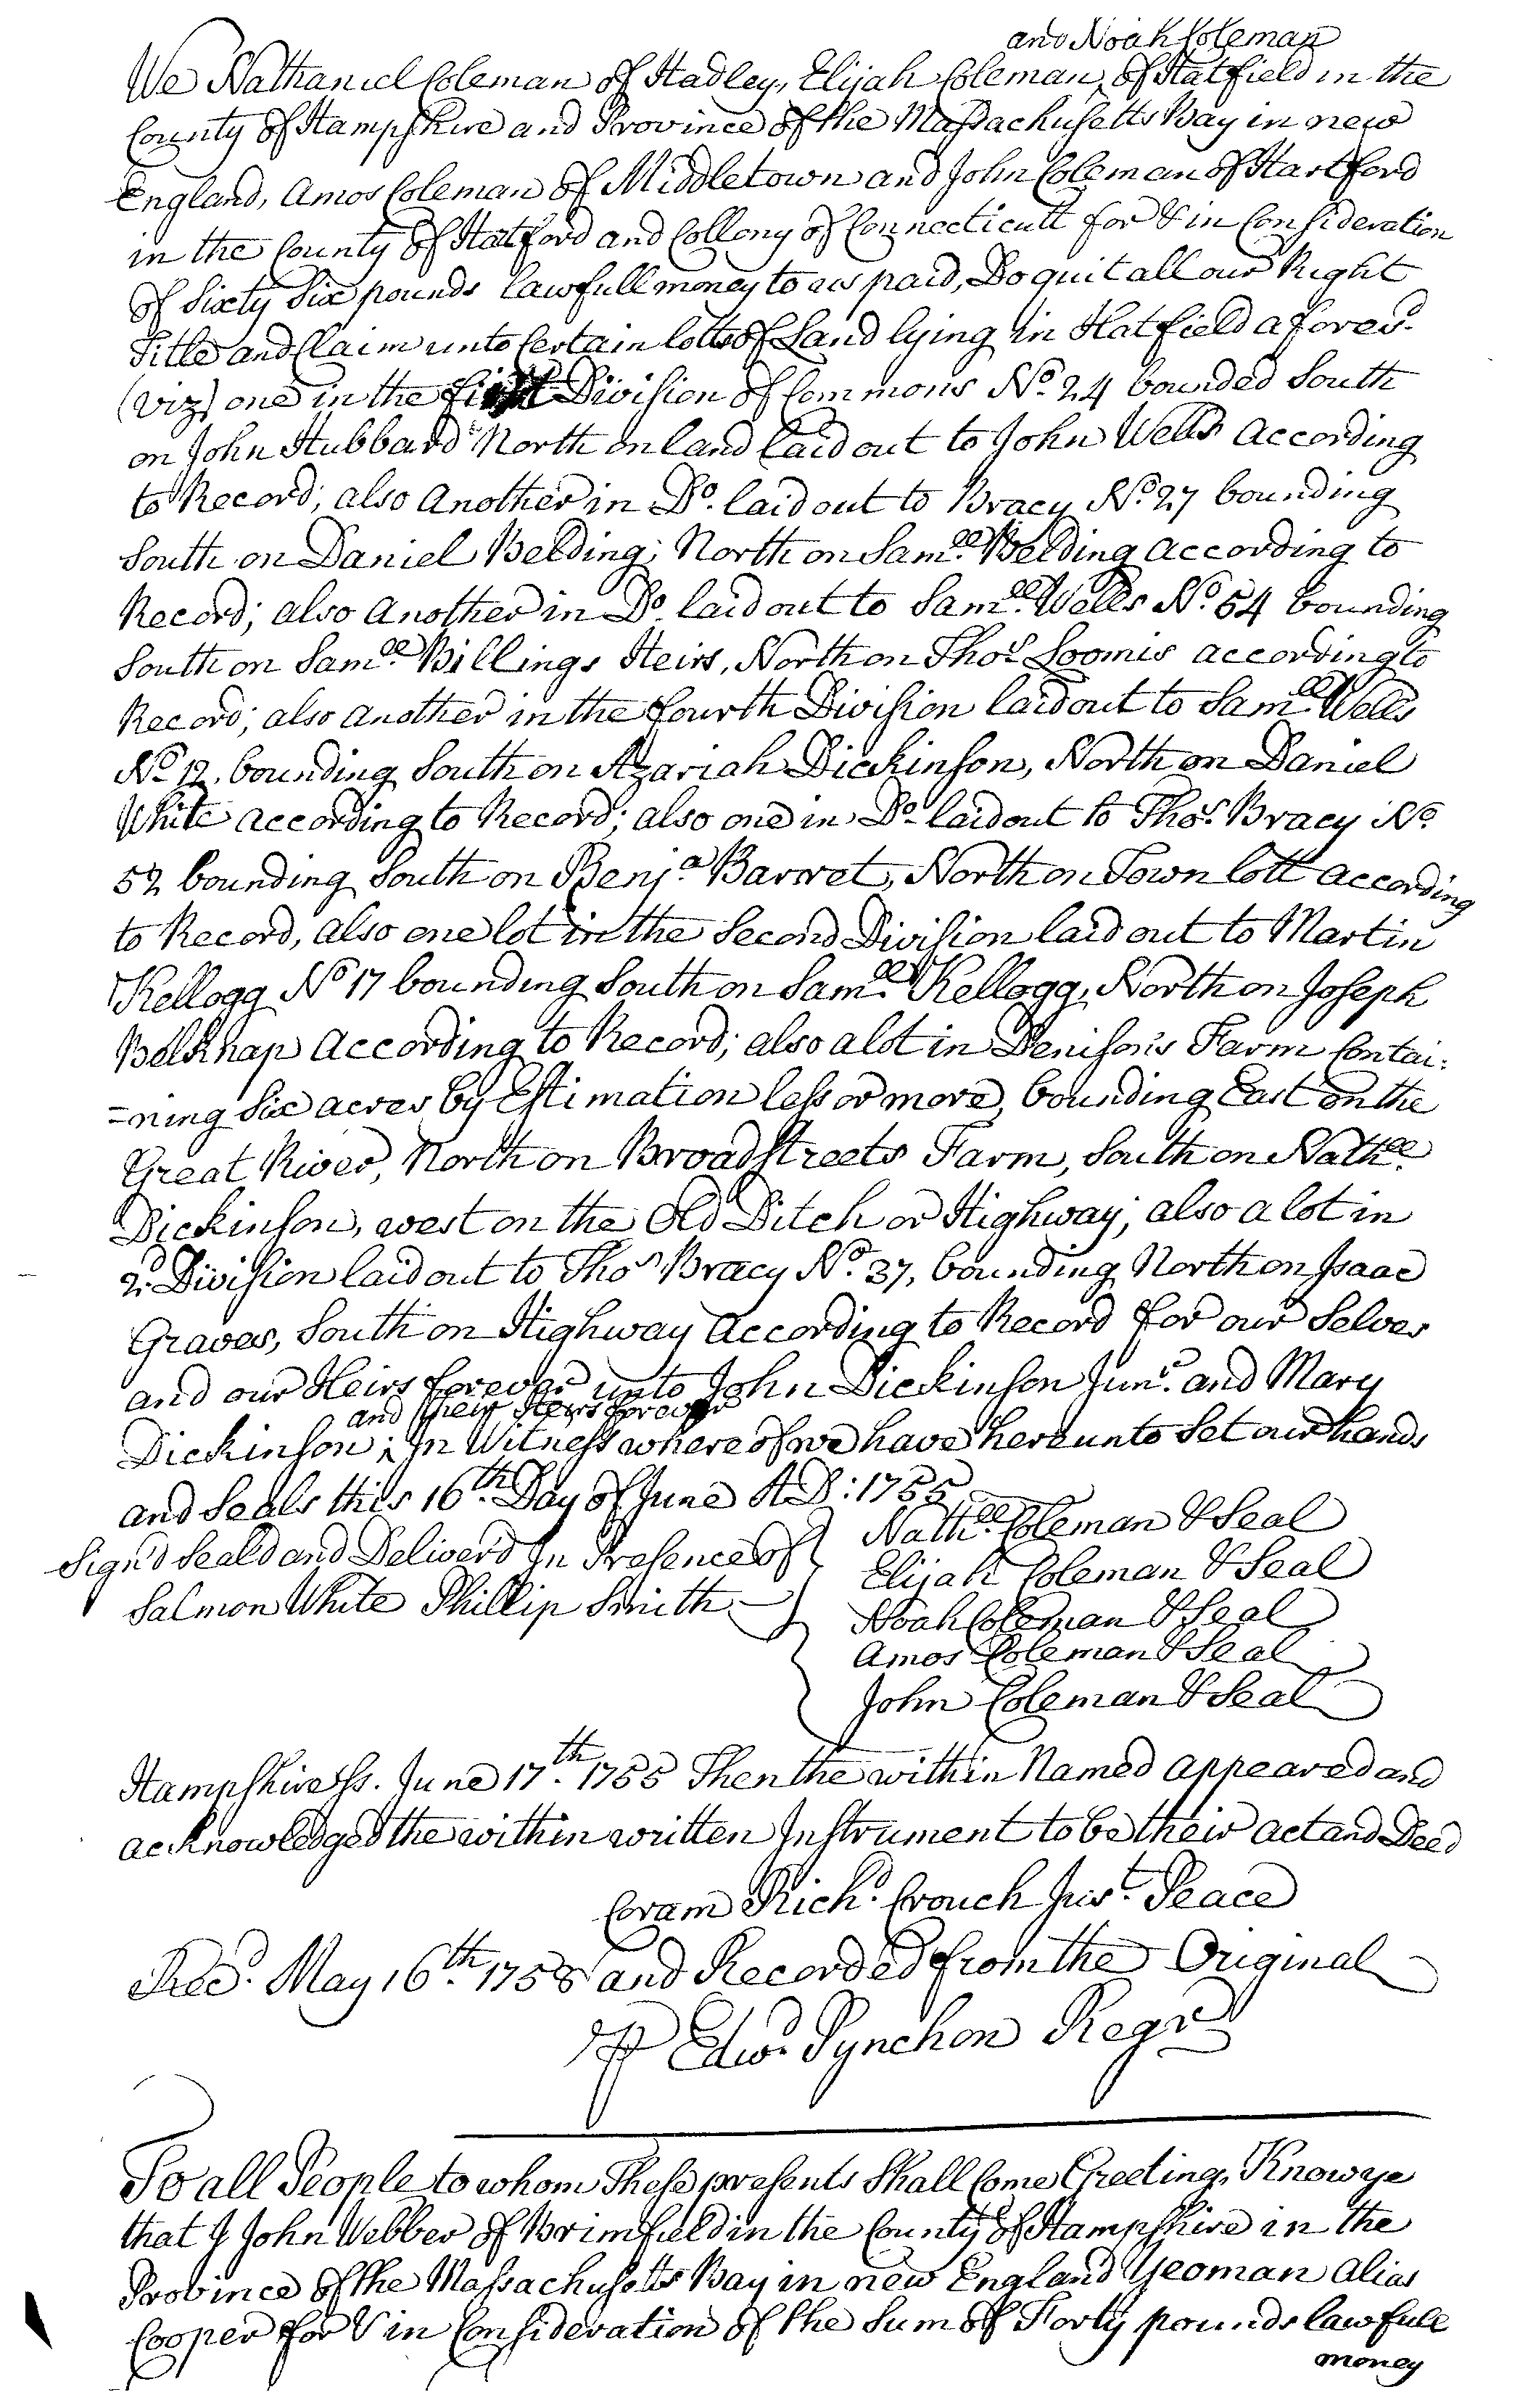 and Noah Coleman
We Nathaniel Coleman of Hadley, Elijah Coleman, of Hatfield in the
County of Hampshire and Province of the Massachusetts Bay in new
England, Amos Coleman of Middletown and John Coleman of Hartford
in the County of Hartford and Collony of Connecticutt for & in Consideration
of Sixty Six pounds lawfull money to us paid, Do quit all our Right
Title and Claim unto Certain lotts of Land lying in Hatfield afores.d
(viz) one in the first Division of Commons No. 24 bounded South
on John Hubbard North on land laid out to John Wells according
to Record; also Another in Do. laid out to Bracy No. 27 bounding
South on Daniel Belding; North on Sam.ll Belding according to
Record; also Another in Do. laid out to Sam.ll Wells No. 54 bounding
South on Sam.ll Billings Heirs, North on Thos. Loomis according to
Record; also another in the fourth Division laid out to Sam.ll Wells
No. 12. bounding South on Azariah Dickinson, North on Daniel
White according to Record; also one in Do. laid out to Thos. Bracy No.
52 bounding South on Benj.a Barret, North on Town lott according
to Record, also one lot in the Second Division laid out to Martin
Kellogg No 17 bounding South on Sam.ll Kellogg, North on Joseph
Belknap According to Record; also a lot in Denison's Farm Contai:
=ning Six acres by Estimation less or more, bounding East on the
Great River, North on Broadstreets Farm, South on Nath.ll
Dickinson, west on the Old Ditch or Highway; also a lot in
2.d Division laid out to Thos Bracy No. 37, bounding North on Isaac
Graves, South on Highway According to Record for our Selves
and our Heirs forever unto John Dickinson Jun.r and Mary
and their Heirs forever
Dickinson; In Witness whereof we have hereunto Set our hands
and Seals this 16.th Day of June A D: 1755
Nath.ll Coleman & Seal
Sign'd Seald and Deliver'd In Presence of
Elijah Coleman & Seal
Salmon White Phillip Smith
Noah Coleman & Seal
Amos Coleman & Seal
John Coleman & Seal
Hampshire ss. June 17.th 1755 Then the within Named appeared and
acknowledged the within written Instrument to be their act and Deed
Coram Rich.d Crouch Jus.t Peace
Rec.d May 16.th 1758 and Recorded from the Original
P Edw.d Pynchon Regr
To all People to whom These presents Shall Come Greeting, Know ye
that I John Webber of Brimfield in the County of Hampshire in the
Province of the Massachusetts Bay in new England Yeoman Alias
Cooper for & in Consideration of the Sum of Forty pounds lawfull
money